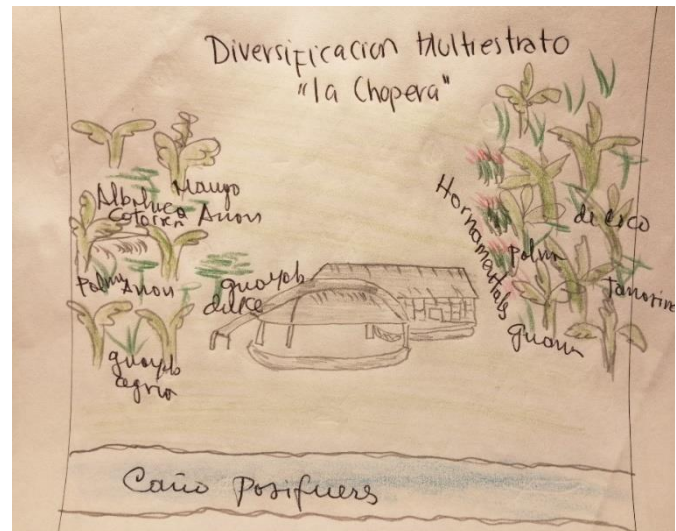 Diversificacion Multiestrato
"la Chopera"
Mango
Albahaca
Anon
Palma Anon
guayab
dulce
guayab
agria
Hornamentales
de coco
Palma
guama
Caño